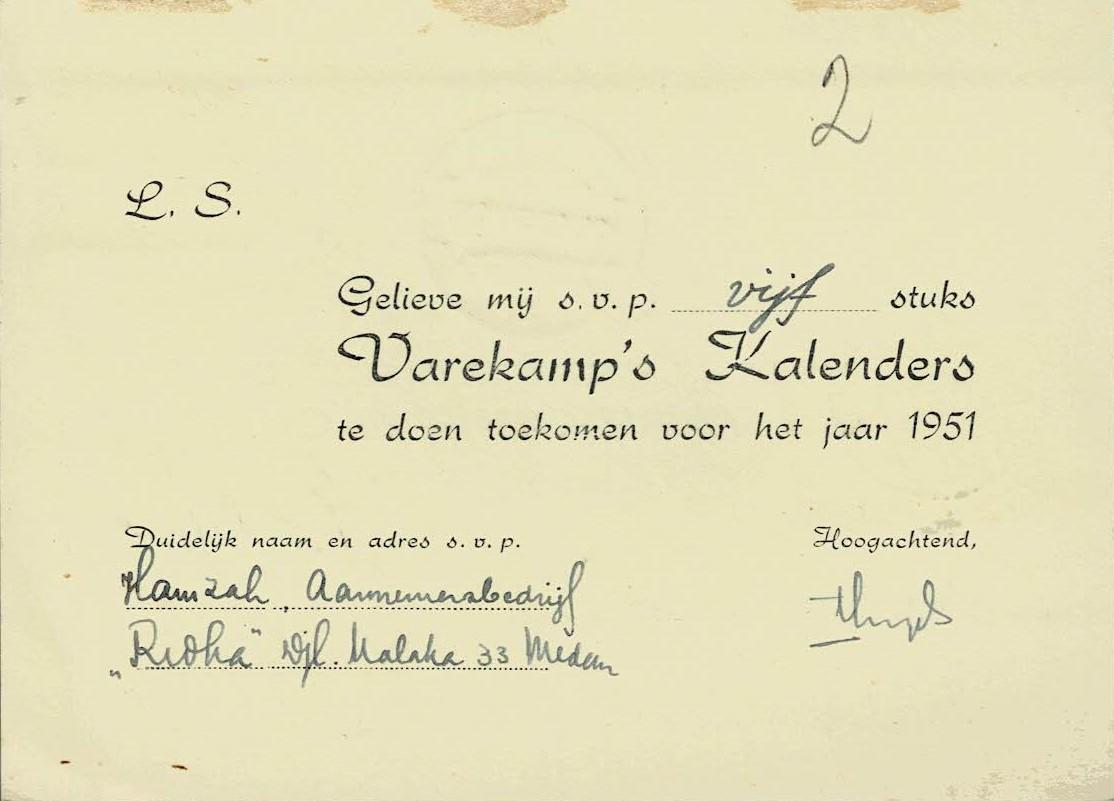 2
L. S.
Gelieve mij s.v.p. vijf stuks
Varekamp's Kalenders
te doen toekomen voor het jaar 1951
Duidelijk naam en adres s.v.p.
Hoogachtend,
Hamzah, Aannemersbedrijf
„Ridha" Djl. Malaka 33 Medan